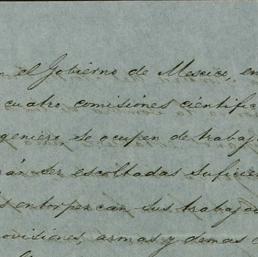 el Gobierno de Mexico, en
cuatro comisiones cientifi
geniero se ocupen de trabaj
rán ser escoltadas suficie
entorpezcan sus trabajo
ovisiones, armas y demas